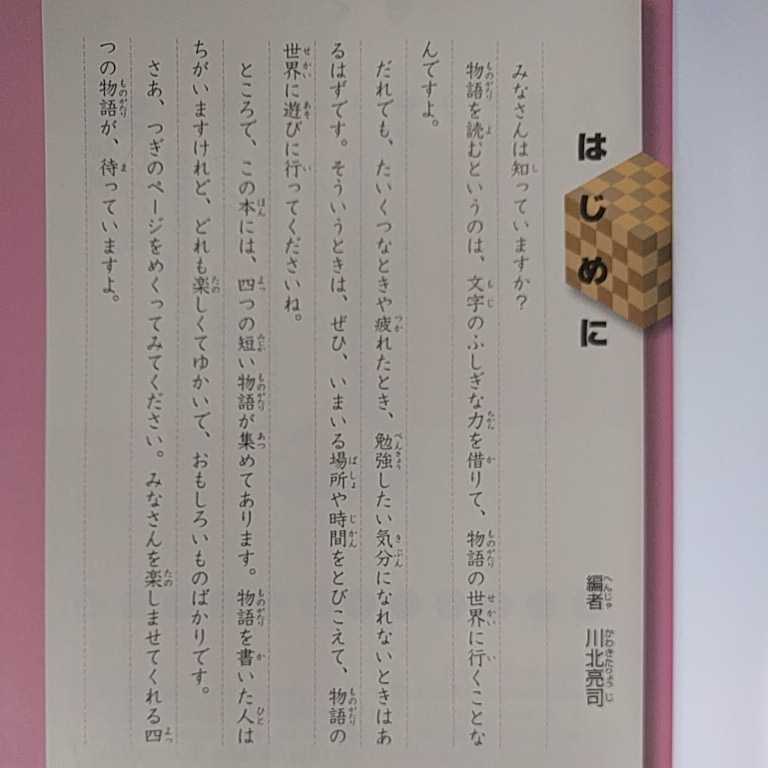 はじめに
編者 川北亮司
みなさんは知っていますか？
物語を読むというのは、文字のふしぎな力を借りて、物語の世界に行くことな
んですよ。
だれでも、たいくつなときや疲れたとき、勉強したい気分になれないときはあ
るはずです。そういうときは、ぜひ、いまいる場所や時間をとびこえて、物語の
世界に遊びに行ってくださいね。
ところで、この本には、四つの短い物語が集めてあります。物語を書いた人は
ちがいますけれど、どれも楽しくてゆかいで、おもしろいものばかりです。
さあ、つぎのページをめくってみてください。みなさんを楽しませてくれる四
つの物語が、待っていますよ。